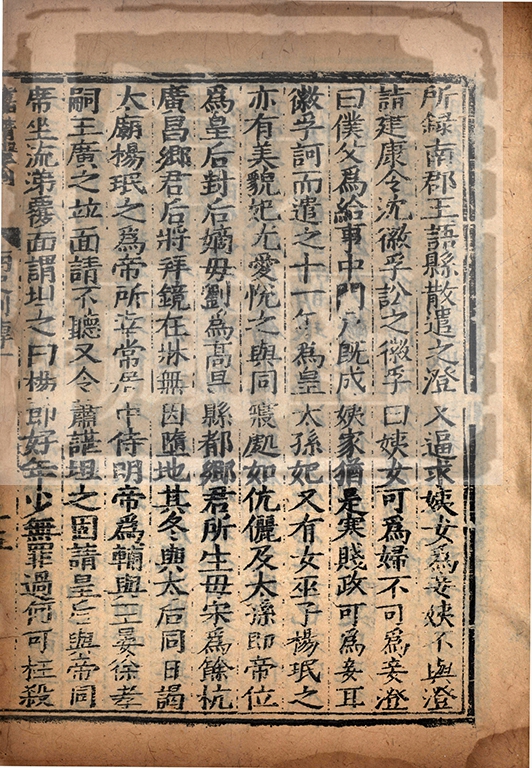 所錄南郡王語縣散遣之澄又逼求姨女爲妾姨不與澄
詣建康令沈徽孚訟之徽孚曰姨女可爲婦不可爲妾澄
曰僕父爲給事中門戶既成姨家猶是寒賤政可爲妾耳
徽孚訶而遣之十一年爲皇太孫妃又有女巫子楊珉之
亦有美貌妃尤愛悅之與同寢處如伉儷及太孫即帝位
爲皇后封后嫡母劉爲高昌縣都鄉君所生母宋爲餘杭
廣昌鄉君后將拜鏡在牀無因墮地其冬與太后同日謁
太廟楊珉之爲帝所幸常居中侍明帝爲輔與王晏徐孝
嗣王廣之竝面請不聽又令蕭諶坦之固請皇后與帝同
席坐流涕覆面謂坦之曰楊郎好年少無罪過何可枉殺